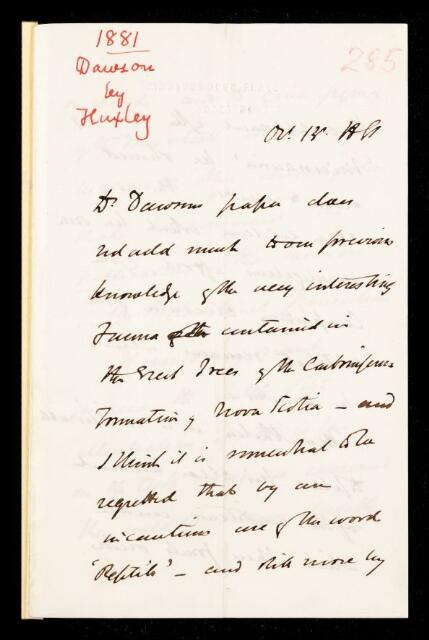 1881
Dawson
by
Huxley
285
Oct. 13. 1881
Dr. Dawsons paper does
not add much to our previous
knowledge of the very interesting
Fauna contained in
the Erect Trees of the Carboniferous
Formation of Nova Scotia — and
I think it is somewhat to be
regretted that by an
incautious use of the word
'Reptile' — and still more by